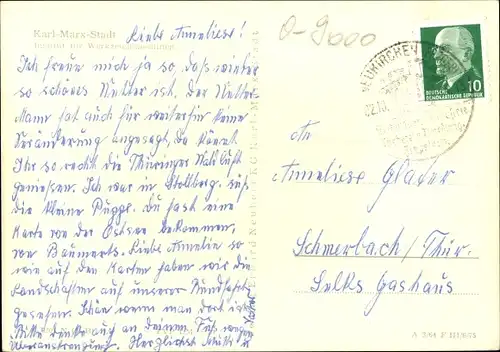 Karl-Marx-Stadt
Institut für
Liebe Anneliese!
Ich freue mich ja so, daß wieder
so schönes Wetter ist. Der Wetter-
Mann hat auch für weiterhin keine
Veränderung angesagt, da könnt
Ihr so recht die Thüringer Waldluft
genießen. Ich war in Stollberg.
die kleine Puppe. Du hast eine
Karte von der Ostsee bekommen,
von Baumerts. Liebe Annelie so
wie auf den Karten haben wir die
Landschaften auf unserer Rundfahrt
gesehen. Schön wenn man dort ist.
Bitte denke auf an Deinen Fuß wegen
Überanstrengung. Herzlichst
0-9000
NEUKIRCHEN
22.10.
DEUTSCHE
DEMOKRATISCHE REPUBLIK
10
An
Anneliese Glaser
Schmerbach/Thür.
Selks Gasthaus
A 2/64 F III/6/73